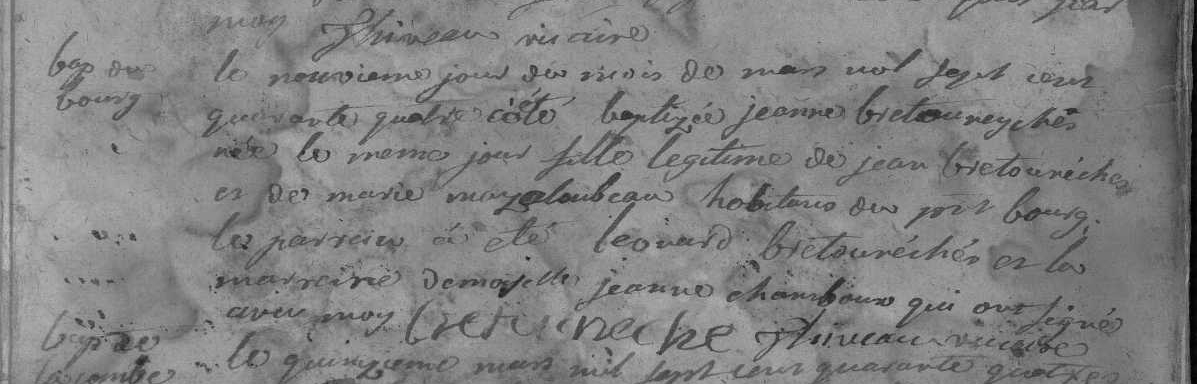 moy Thiveau vicaire
bap du le neuvieme jour du mois de mars mil sept cent
bourg quarante quatre a été baptizée jeanne bretoureychés
née le meme jour fille legitime de jean bretouréches
et de marie mazaloubeau habitans du pnt bourg.
le parrein a été leonard bretouréchés et la
marreine demoiselle jeanne chamboux qui ont signé
avec moy bretoureche Thiveau vicaire
bap de le quinzieme mars mil sept cent quarante quatre
lacombe